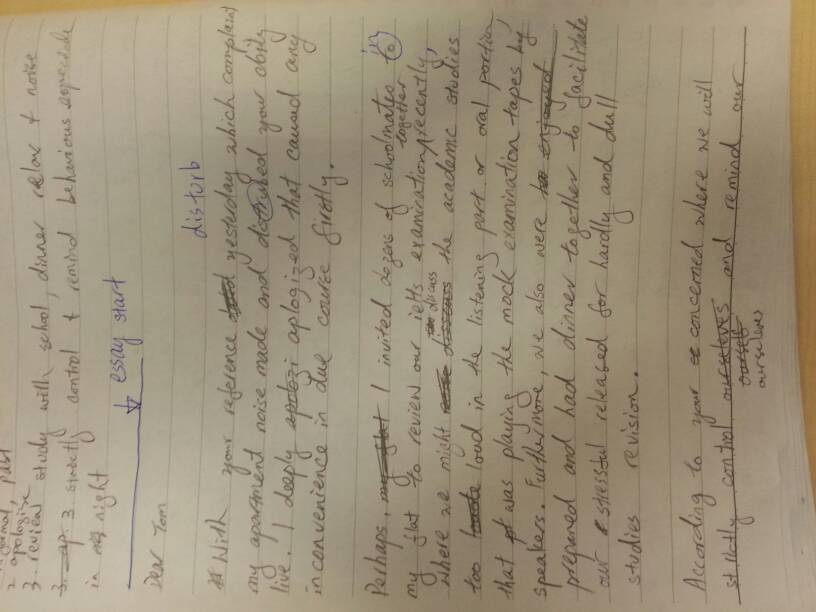 2. apologize
3. review study with school, dinner relax & noise
3. ap. 3 strictly control & remind behavious especiale
in night
essay start
Dear Tom
disturb
With your reference yesterday which complaint
my apartment noise made and disturbed your abily
live. I deeply aplogized that caused any
inconvenience in due course firstly.
Perhaps, my flat I invited dozens of schoolmates to in
my flat to review our ielts examination together recently,
where we might discuss the academic studies
too loud in the listening part or oral portion
that was playing the mock examination tapes by
speakers. Furthermore, we also were enjoyed
prepared and had dinner together to facilitate
our stressful released for hardly and dull
studies revision.
According to your concerned where we will
strictly control ourseleves and remind our
ourself
ourseleves